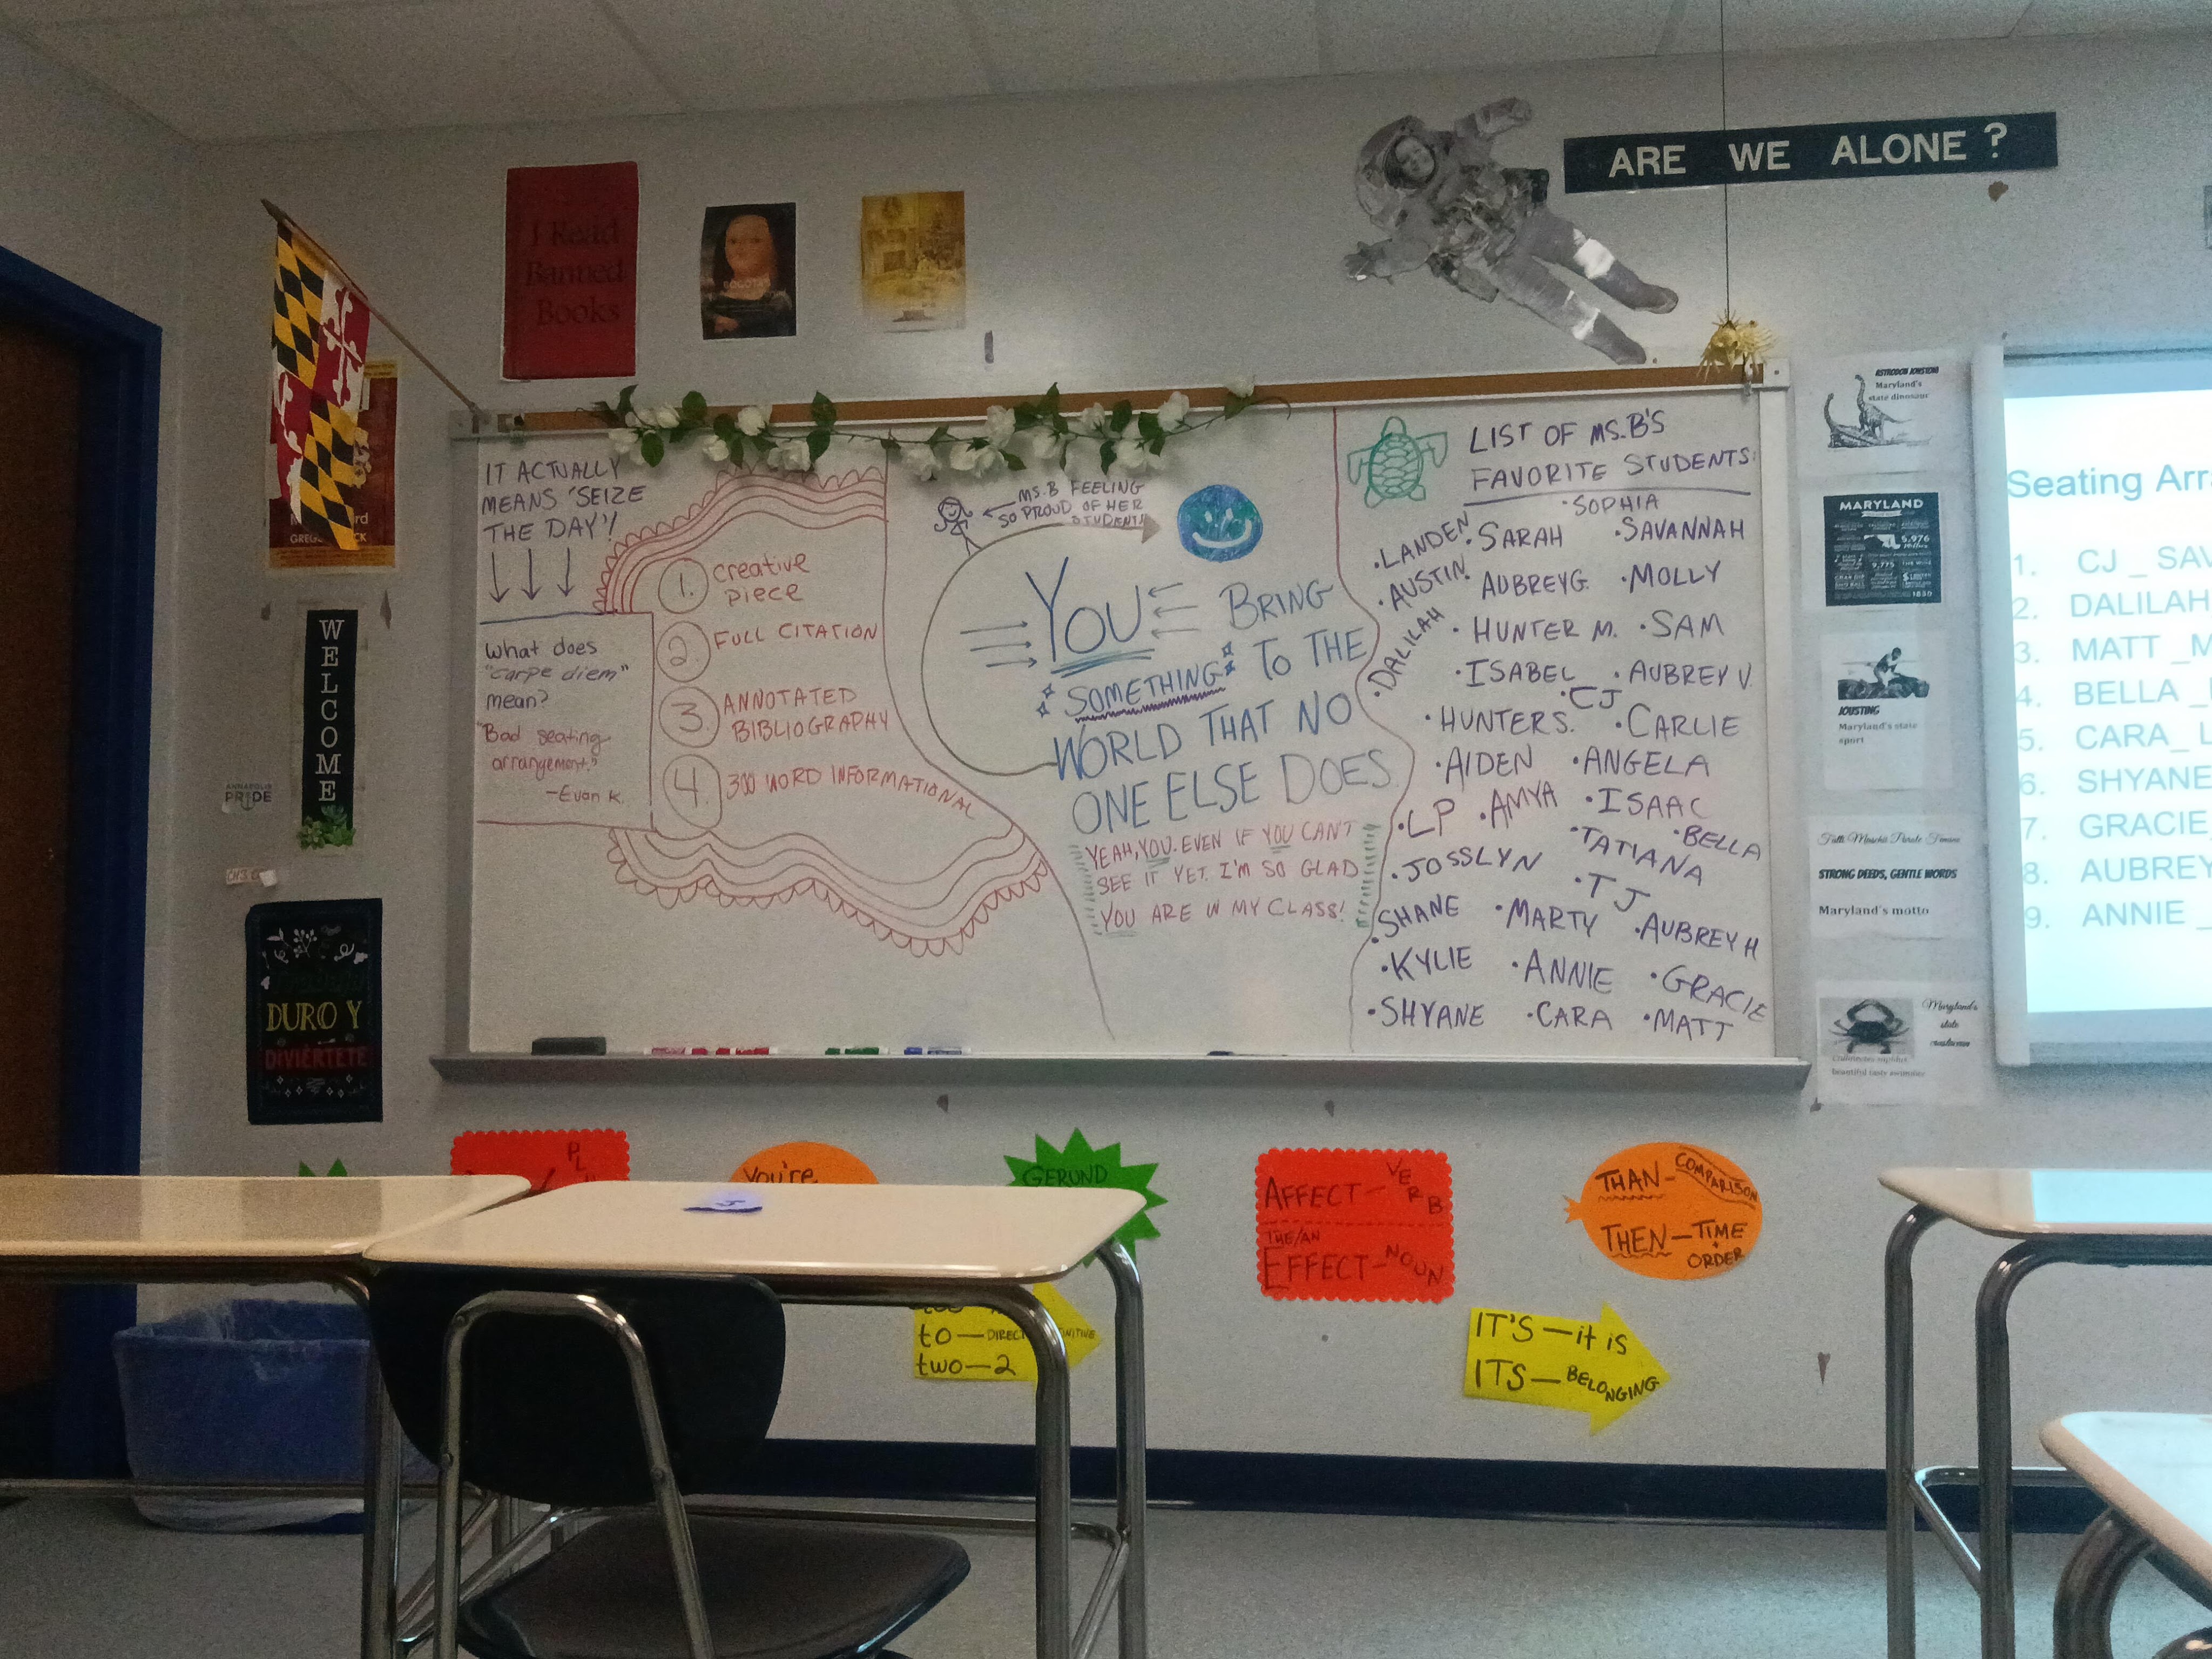 ARE WE ALONE?
I Read
Banned
Books
BOGOTA
WELCOME
ANNAPOLIS
PRIDE
DURO Y
DIVIÉRTETE
IT ACTUALLY
MEANS 'SEIZE
THE DAY'!
What does
"carpe diem"
mean?
"Bad seating
arrangement."
-Evan K.
1. creative
piece
2. FULL CITATION
3. ANNOTATED
BIBLIOGRAPHY
4. 300 WORD INFORMATIONAL
MS. B FEELING
SO PROUD OF HER
STUDENTS
YOU BRING
SOMETHING TO THE
WORLD THAT NO
ONE ELSE DOES
YEAH, YOU. EVEN IF YOU CAN'T
SEE IT YET. I'M SO GLAD
YOU ARE IN MY CLASS!
LIST OF MS. B'S
FAVORITE STUDENTS:
·SOPHIA
·LANDEN ·SARAH ·SAVANNAH
·AUSTIN ·AUBREY G. ·MOLLY
·DALILAH ·HUNTER M. ·SAM
·ISABEL ·AUBREY V.
·CJ
·HUNTER S. ·CARLIE
·AIDEN ·ANGELA
·LP ·AMYA ·ISAAC
·JOSSLYN ·TATIANA ·BELLA
·TJ
·SHANE ·MARTY ·AUBREY H
·KYLIE ·ANNIE ·GRACIE
·SHYANE ·CARA ·MATT
ASTRODON JOHNSTONI
Maryland's
state dinosaur
MARYLAND
5.976
9,775
JOUSTING
Maryland's state
sport
Fatti Maschii Parole Femine
STRONG DEEDS, GENTLE WORDS
Maryland's motto
Maryland's
state
crustacean
Callinectes sapidus
beautiful tasty swimmer
Seating Arr
1. CJ _ SAV
2. DALILAH
3. MATT _M
4. BELLA _
5. CARA_ L
6. SHYANE
7. GRACIE
8. AUBREY
9. ANNIE _
You're
GERUND
AFFECT-VERB
THE/AN
EFFECT-NOUN
THAN-COMPARISON
THEN-TIME
ORDER
to—
two—2
IT'S—it is
ITS—BELONGING